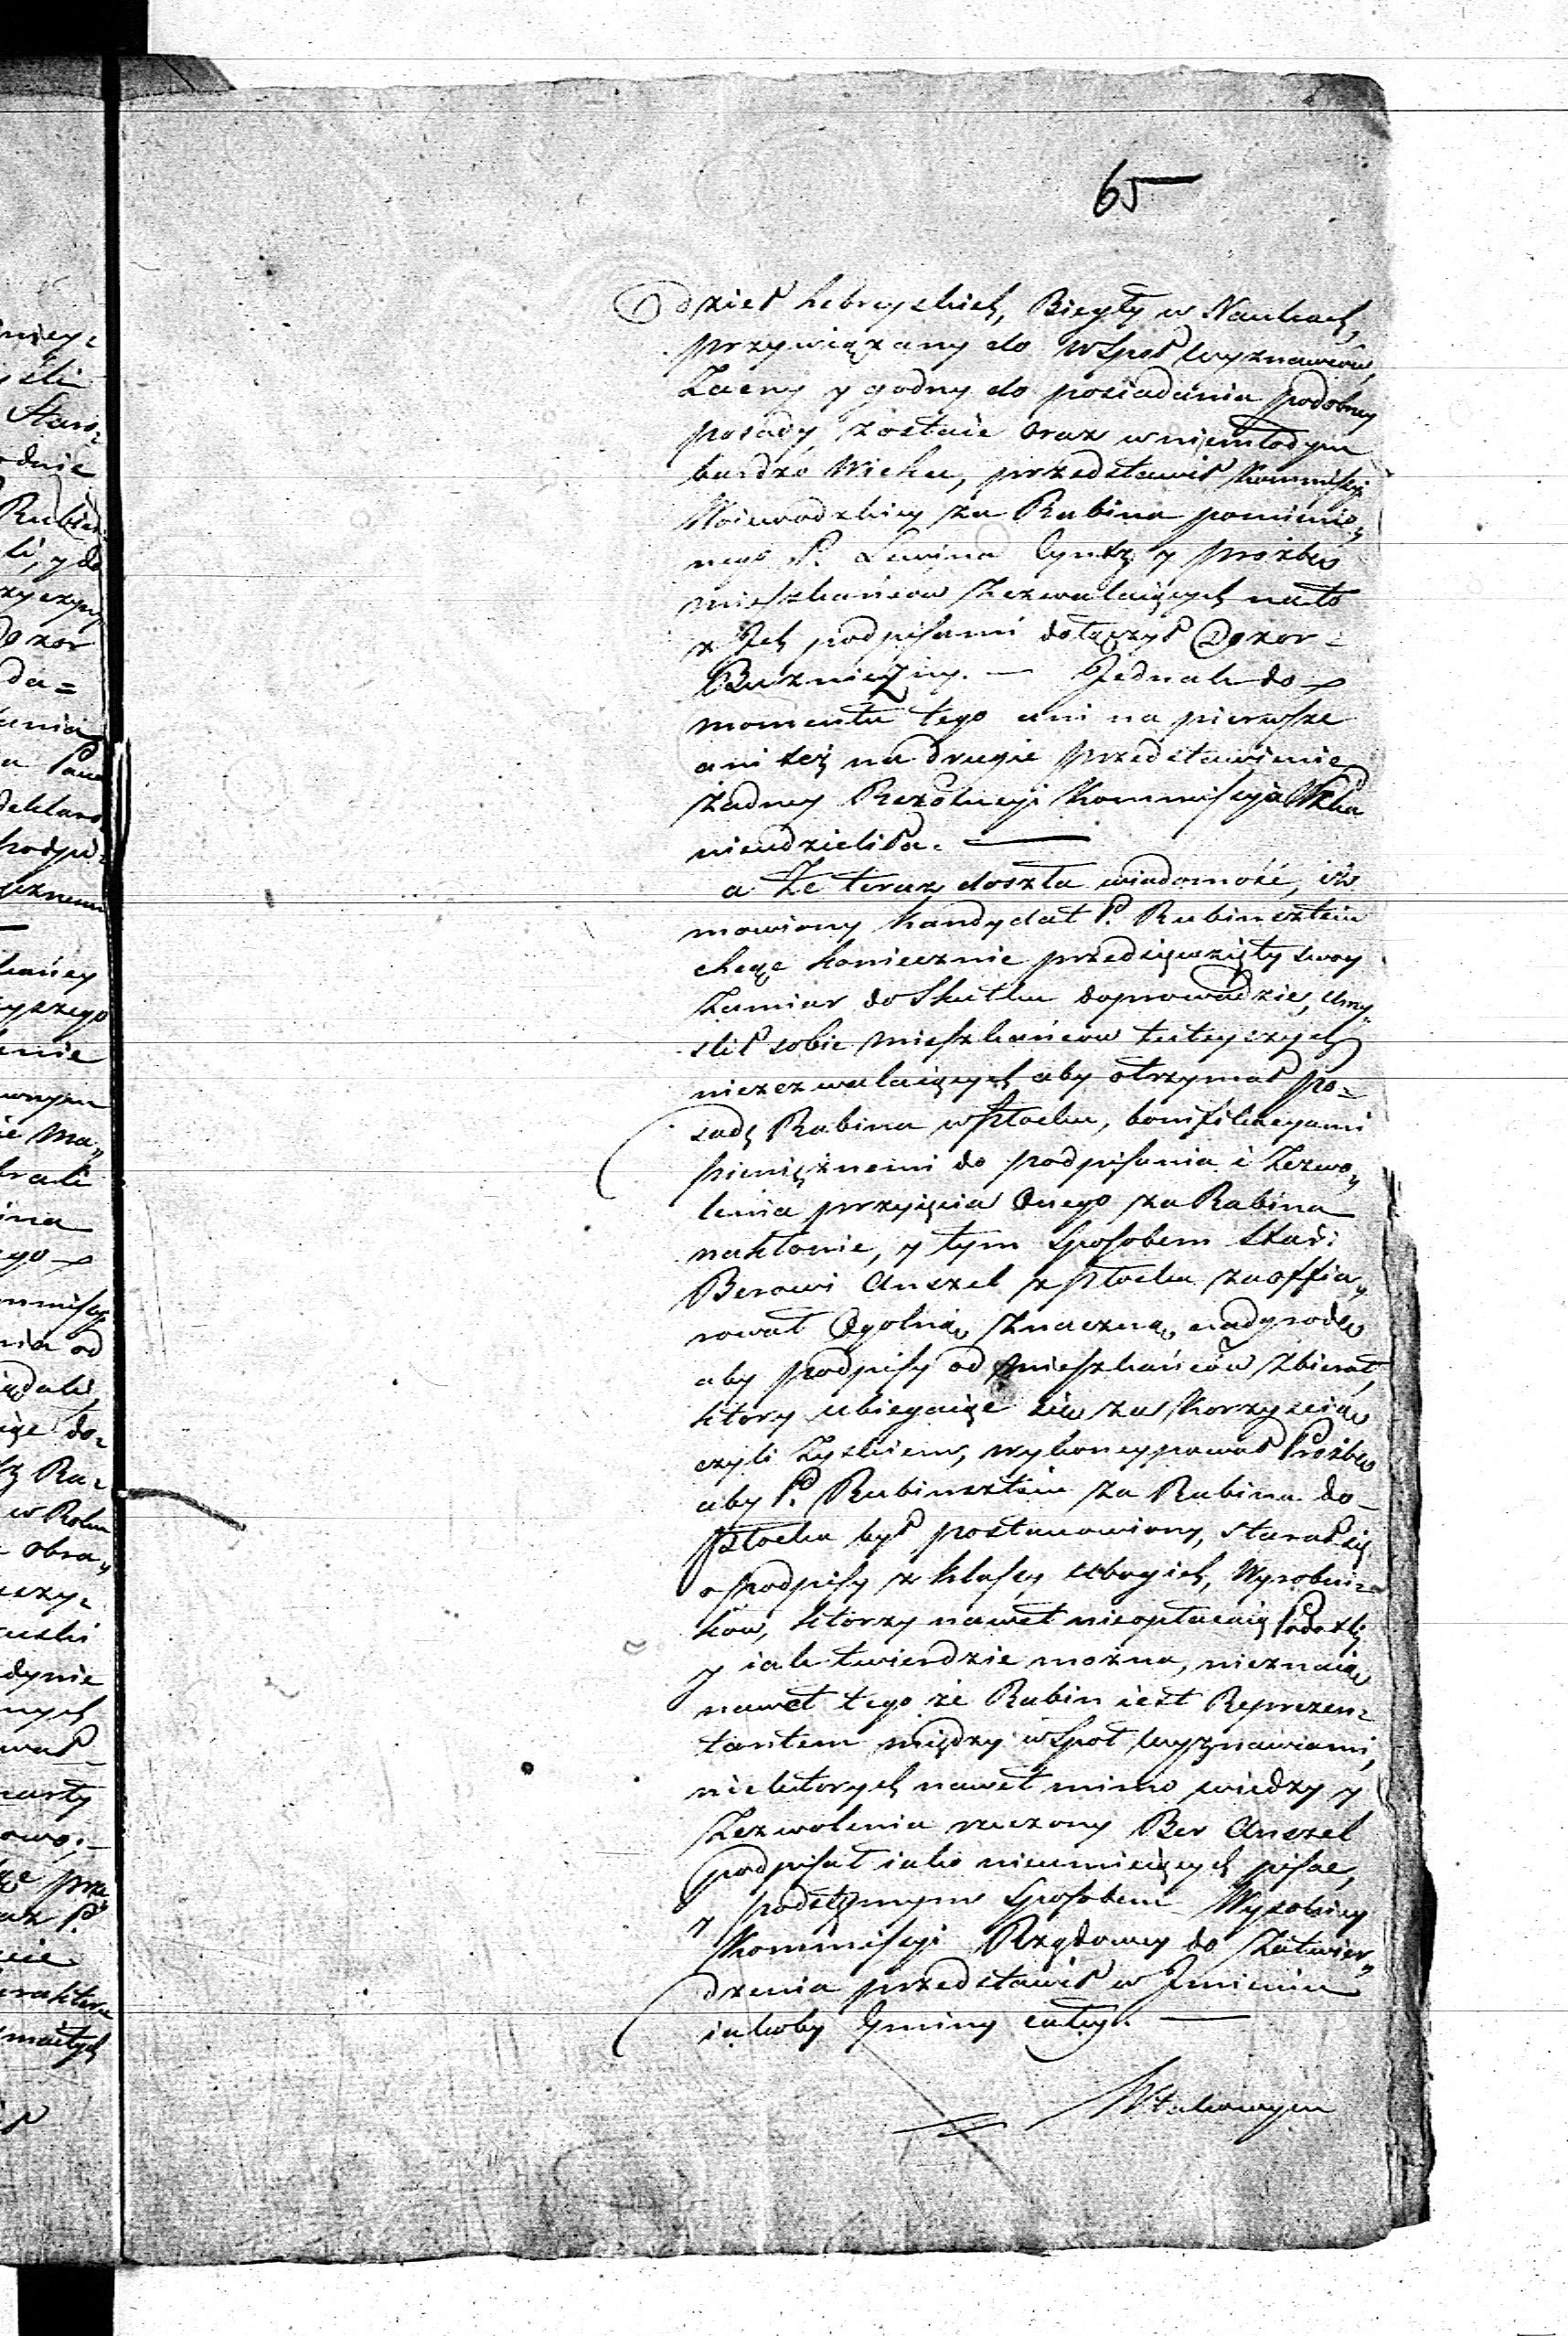 65
Dzieł hebreyskich, Biegły w Naukach,
przywiązany do wspoł wyznawców,
Zacny y godny do posiadania podobney
posady zostaie oraz w niemłodym
bardzo Wieku, przedstawił Kommissyi
Woiewodzkiey za Rabina pomienio„
nego P. Lewina Cyntz y proźbę
mieszkańcow zezwalaiących na to
z Ich podpisami dołączył Dozor =
Buzniczny. — Jednak do
momentu tego ani na pierwsze
ani też na drugie przedstawienie
żadney Rezolucyi Kommissyia Wdzka
nieudzieliła. —
a Że teraz doszła wiadomość, iż
mowiony Kandydat P. Rubinsztein
chcąc koniecznie przedsięwzięty swoy
Zamiar do Skutku doprowadzić, umy„
slił sobie mieszkańcow tuteyszych
niezezwalaiących aby otrzymał po=
sadę Rabina w Płocku, bonifikacyami
pieniężnemi do podpisania i Zezwo„
lenia przyięcia Onego za Rabina
nakłonić, y tym sposobem Star:
Berowi Anszel z Płocka zaoffia„
rował Ogolną znaczną nadgrodę
aby podpisy od mieszkańców zbierał,
ktory ubiegaiąc się za Korzyscią
czyli Zyskiem, wykoncypował Proźbę
aby P. Rubinsztein za Rabina do -
Płocka był postanowiony, starał się
o podpisy z klassy ubogich, Wyrobni=
kow, ktorzy nawet nieopłacaią Podatki
y iak twierdzić można, nieznaią
nawet tego że Rabin iest Reprezen=
tantem między wspoł wyznawcami,
niektorych nawet mimo wiedzy y
Zezwolenia rzeczony Ber Anszel
podpisał iako nieumieiących pisać,
y podstępnym sposobem Wysokiey
Kommissyi Rządowey do Zatwier„
dzenia przedstawił w Imieniu
iakoby Gminy całey. —
W takowym